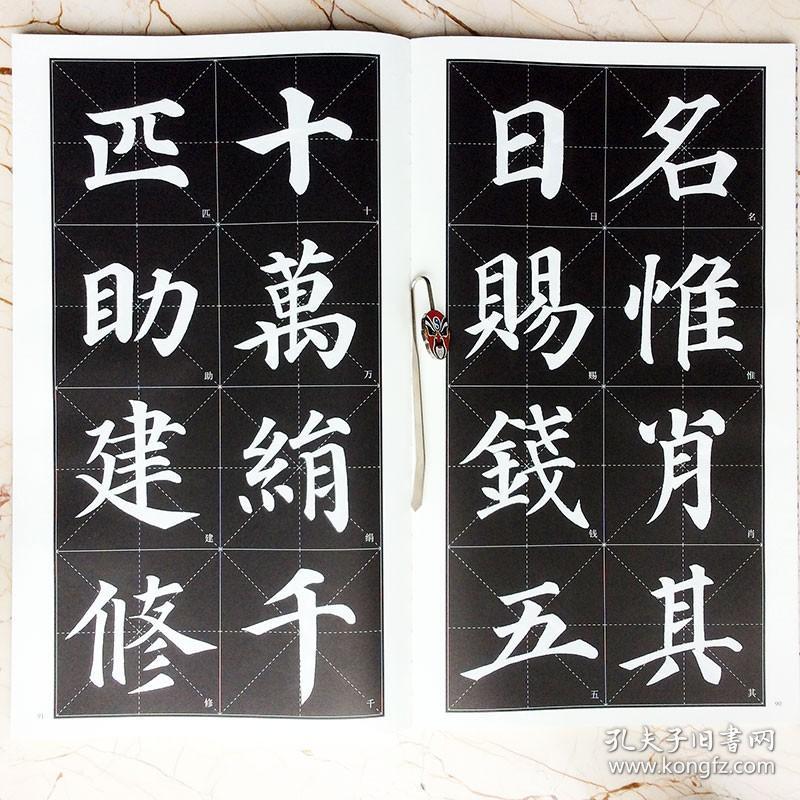 名惟肖其
名
惟
肖
其
日賜錢五
日
赐
钱
五
90
十萬絹千
十
万
绢
千
匹助建修
匹
助
建
修
91
孔夫子旧书网
www.kongfz.com